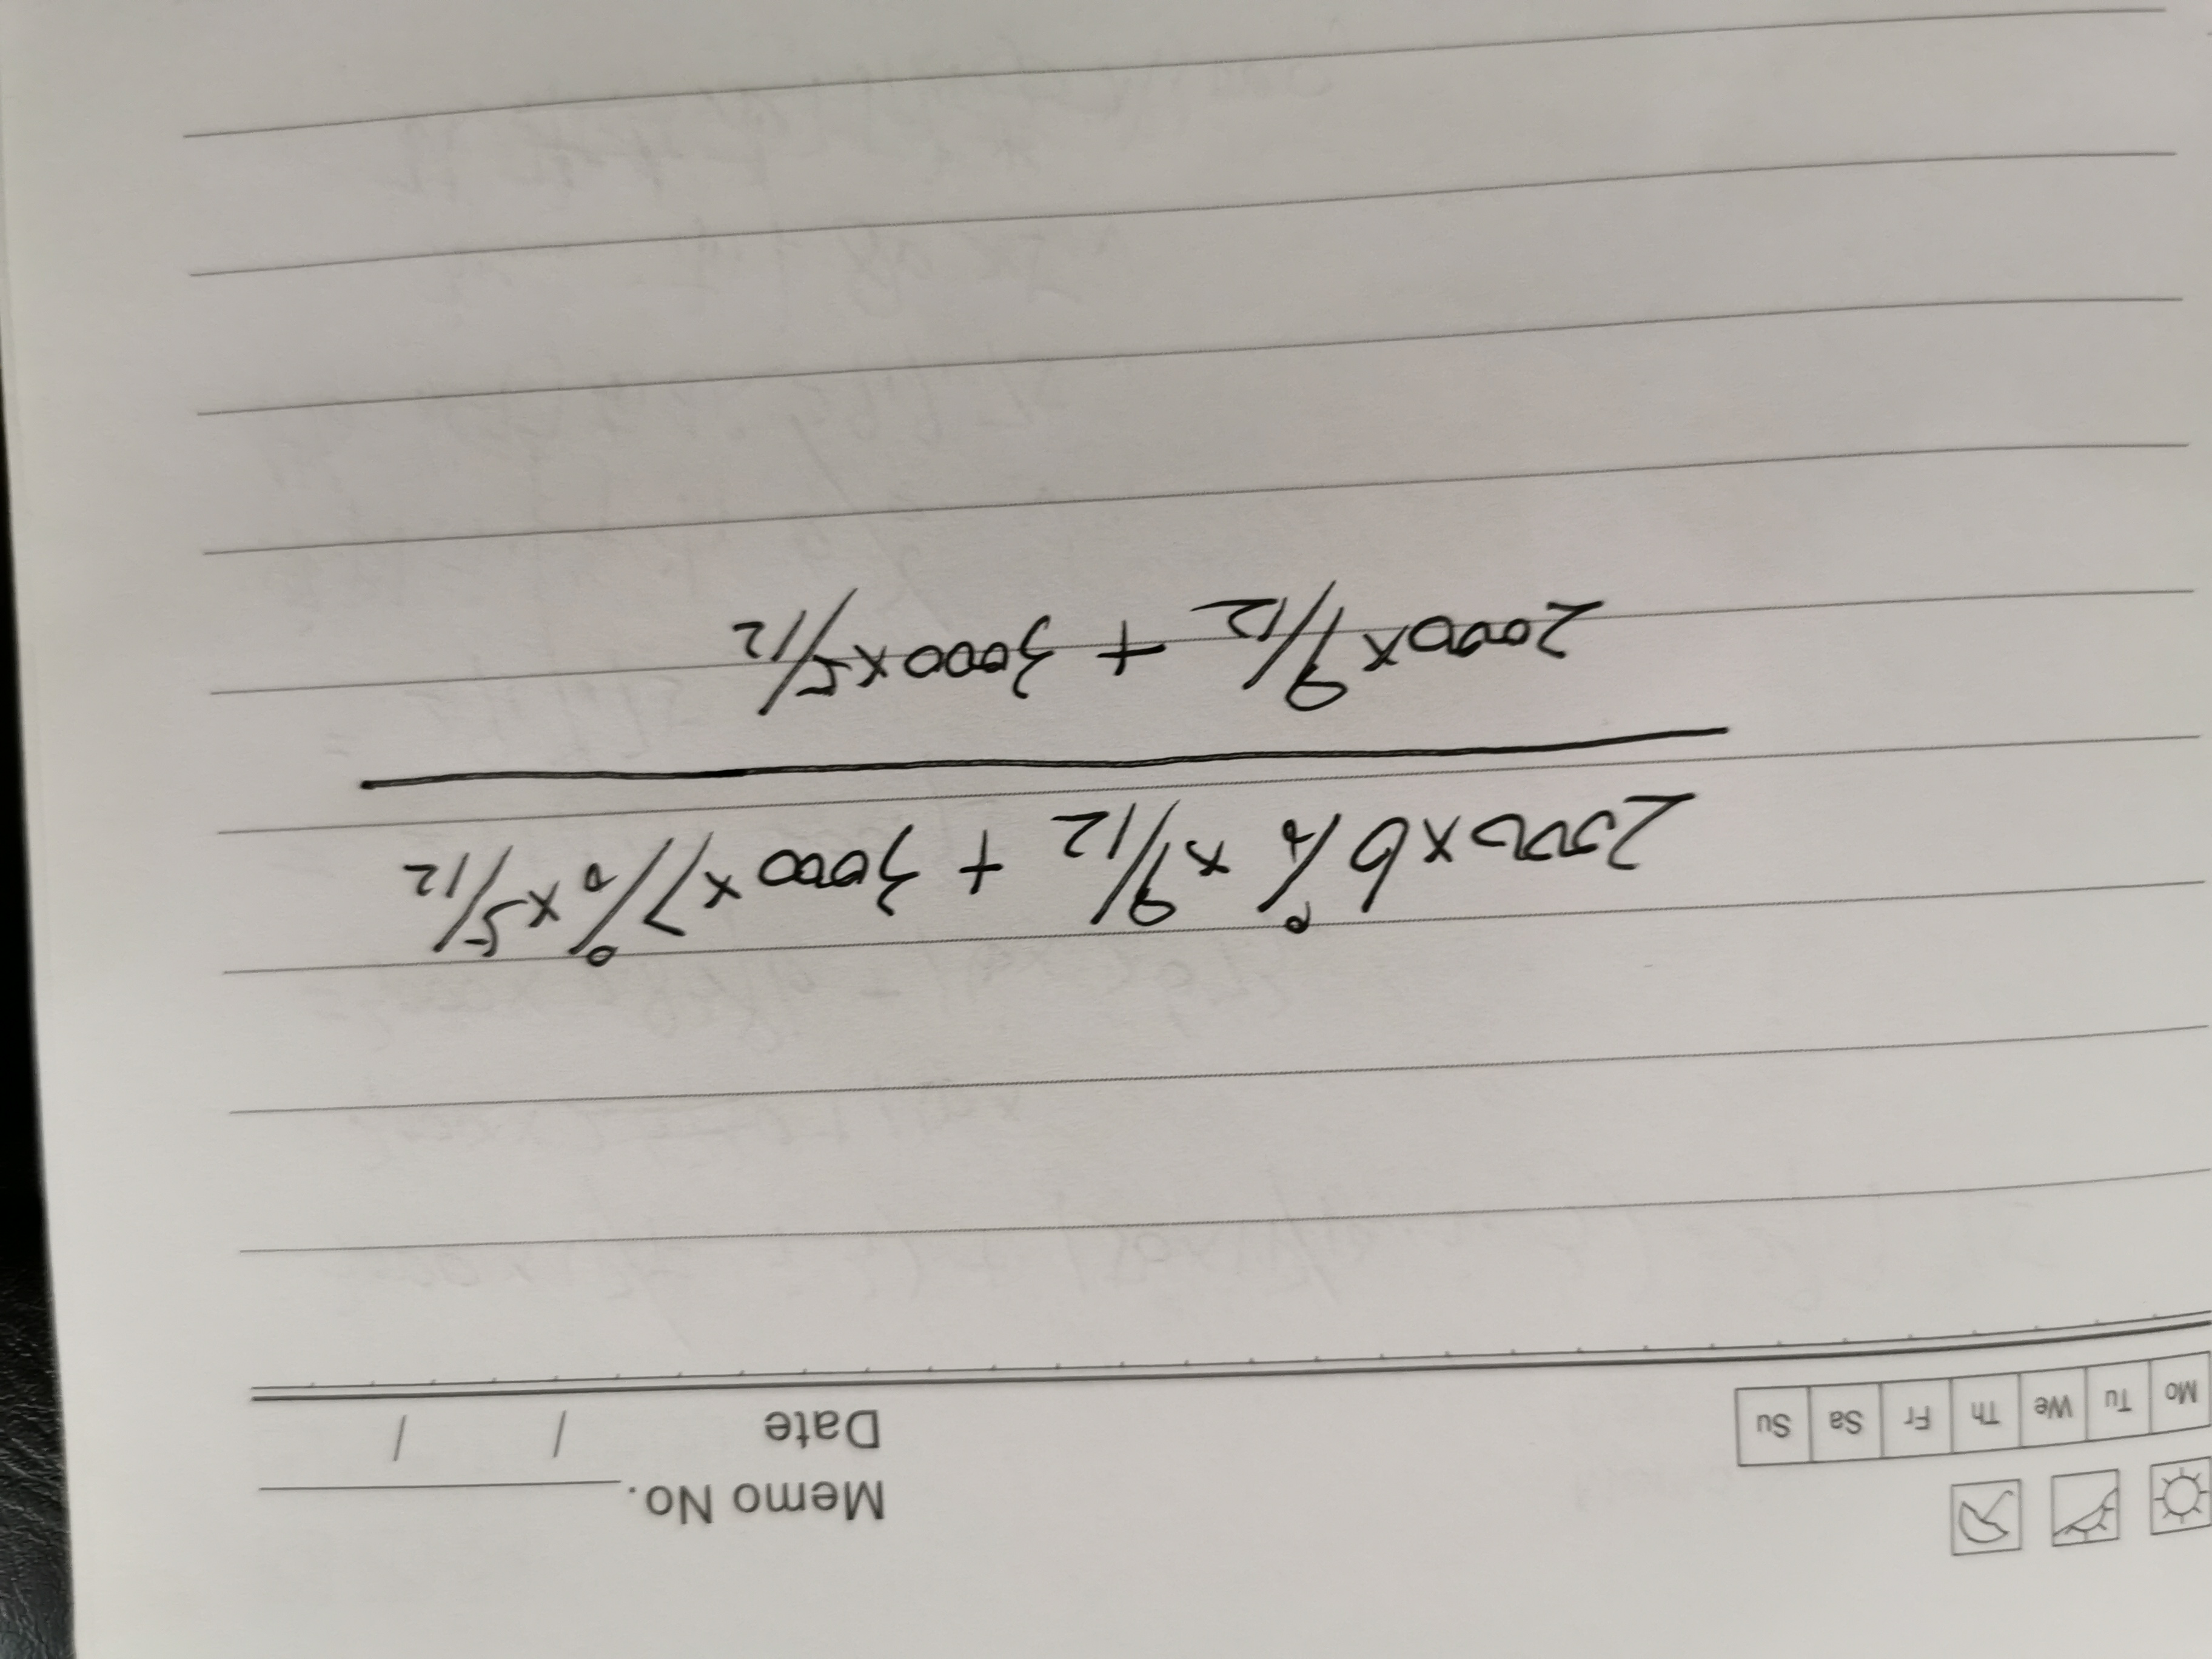 Memo No.
Mo Tu We Th Fr Sa Su Date / /
2000×6%×9/12 + 3000×7%×5/12
2000×9/12 + 3000×5/12